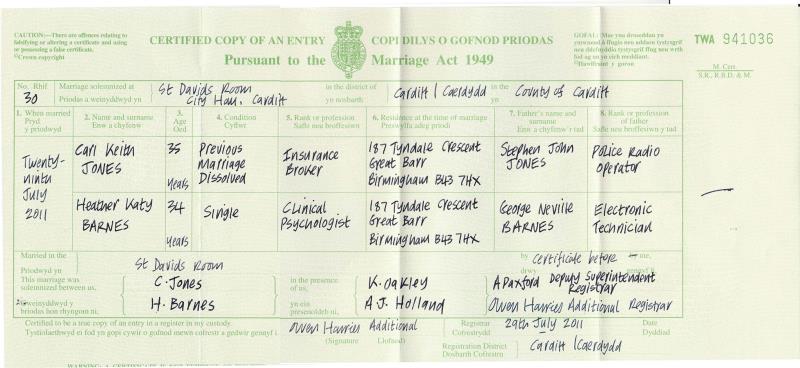 CAUTION:—There are offences relating to
falsifying or altering a certificate and using
or possessing a false certificate.
©Crown copyright
CERTIFIED COPY OF AN ENTRY
COPI DILYS O GOFNOD PRIODAS
Pursuant to the Marriage Act 1949
GOFAL: Mae yna droseddau yn
ymwneud â ffugio neu addasu tystysgrif
neu ddefnyddio tystysgrif ffug neu wrth
fod ag un yn eich meddiant.
©Hawlfraint y goron
TWA 941036
M. Cert.
S.R., R.B.D. & M.
No. Rhif
30
Marriage solemnized at
Priodas a weinyddwyd yn
St Davids Room
City Hall, Cardiff
in the district of
yn nosbarth
Cardiff / Caerdydd
in the
yn
County of Cardiff
1. When married
Pryd
y priodwyd
2. Name and surname
Enw a chyfenw
3.
Age
Oed
4. Condition
Cyflwr
5. Rank or profession
Safle neu broffesiwn
6. Residence at the time of marriage
Preswylfa adeg priodi
7. Father's name and
surname
Enw a chyfenw'r tad
8. Rank or profession
of father
Safle neu broffesiwn y tad
Twenty-
ninth
July
2011
Carl Keith
JONES
35
years
Previous
Marriage
Dissolved
Insurance
Broker
187 Tyndale Crescent
Great Barr
Birmingham B43 7HX
Stephen John
JONES
Police Radio
Operator
Heather Katy
BARNES
34
years
Single
Clinical
Psychologist
187 Tyndale Crescent
Great Barr
Birmingham B43 7HX
George Neville
BARNES
Electronic
Technician
Married in the
Priodwyd yn
St Davids Room
by
drwy
certificate before
me,
This marriage was
solemnized between us,
Gweinyddwyd y
briodas hon rhyngom ni,
C. Jones
H. Barnes
in the presence
of us,
yn ein
presenoldeb ni,
K. Oakley
A J. Holland
A Paxford Deputy Superintendent
Registrar
Owen Harries Additional Registrar
Certified to be a true copy of an entry in a register in my custody.
Tystiolaethwyd ei fod yn gopi cywir o gofnod mewn cofrestr a gedwir gennyf i.
Owen Harries Additional
(Signature Llofnod)
Registrar
Cofrestrydd
29th July 2011
Date
Dyddiad
Registration District
Dosbarth Cofrestru
Cardiff / Caerdydd